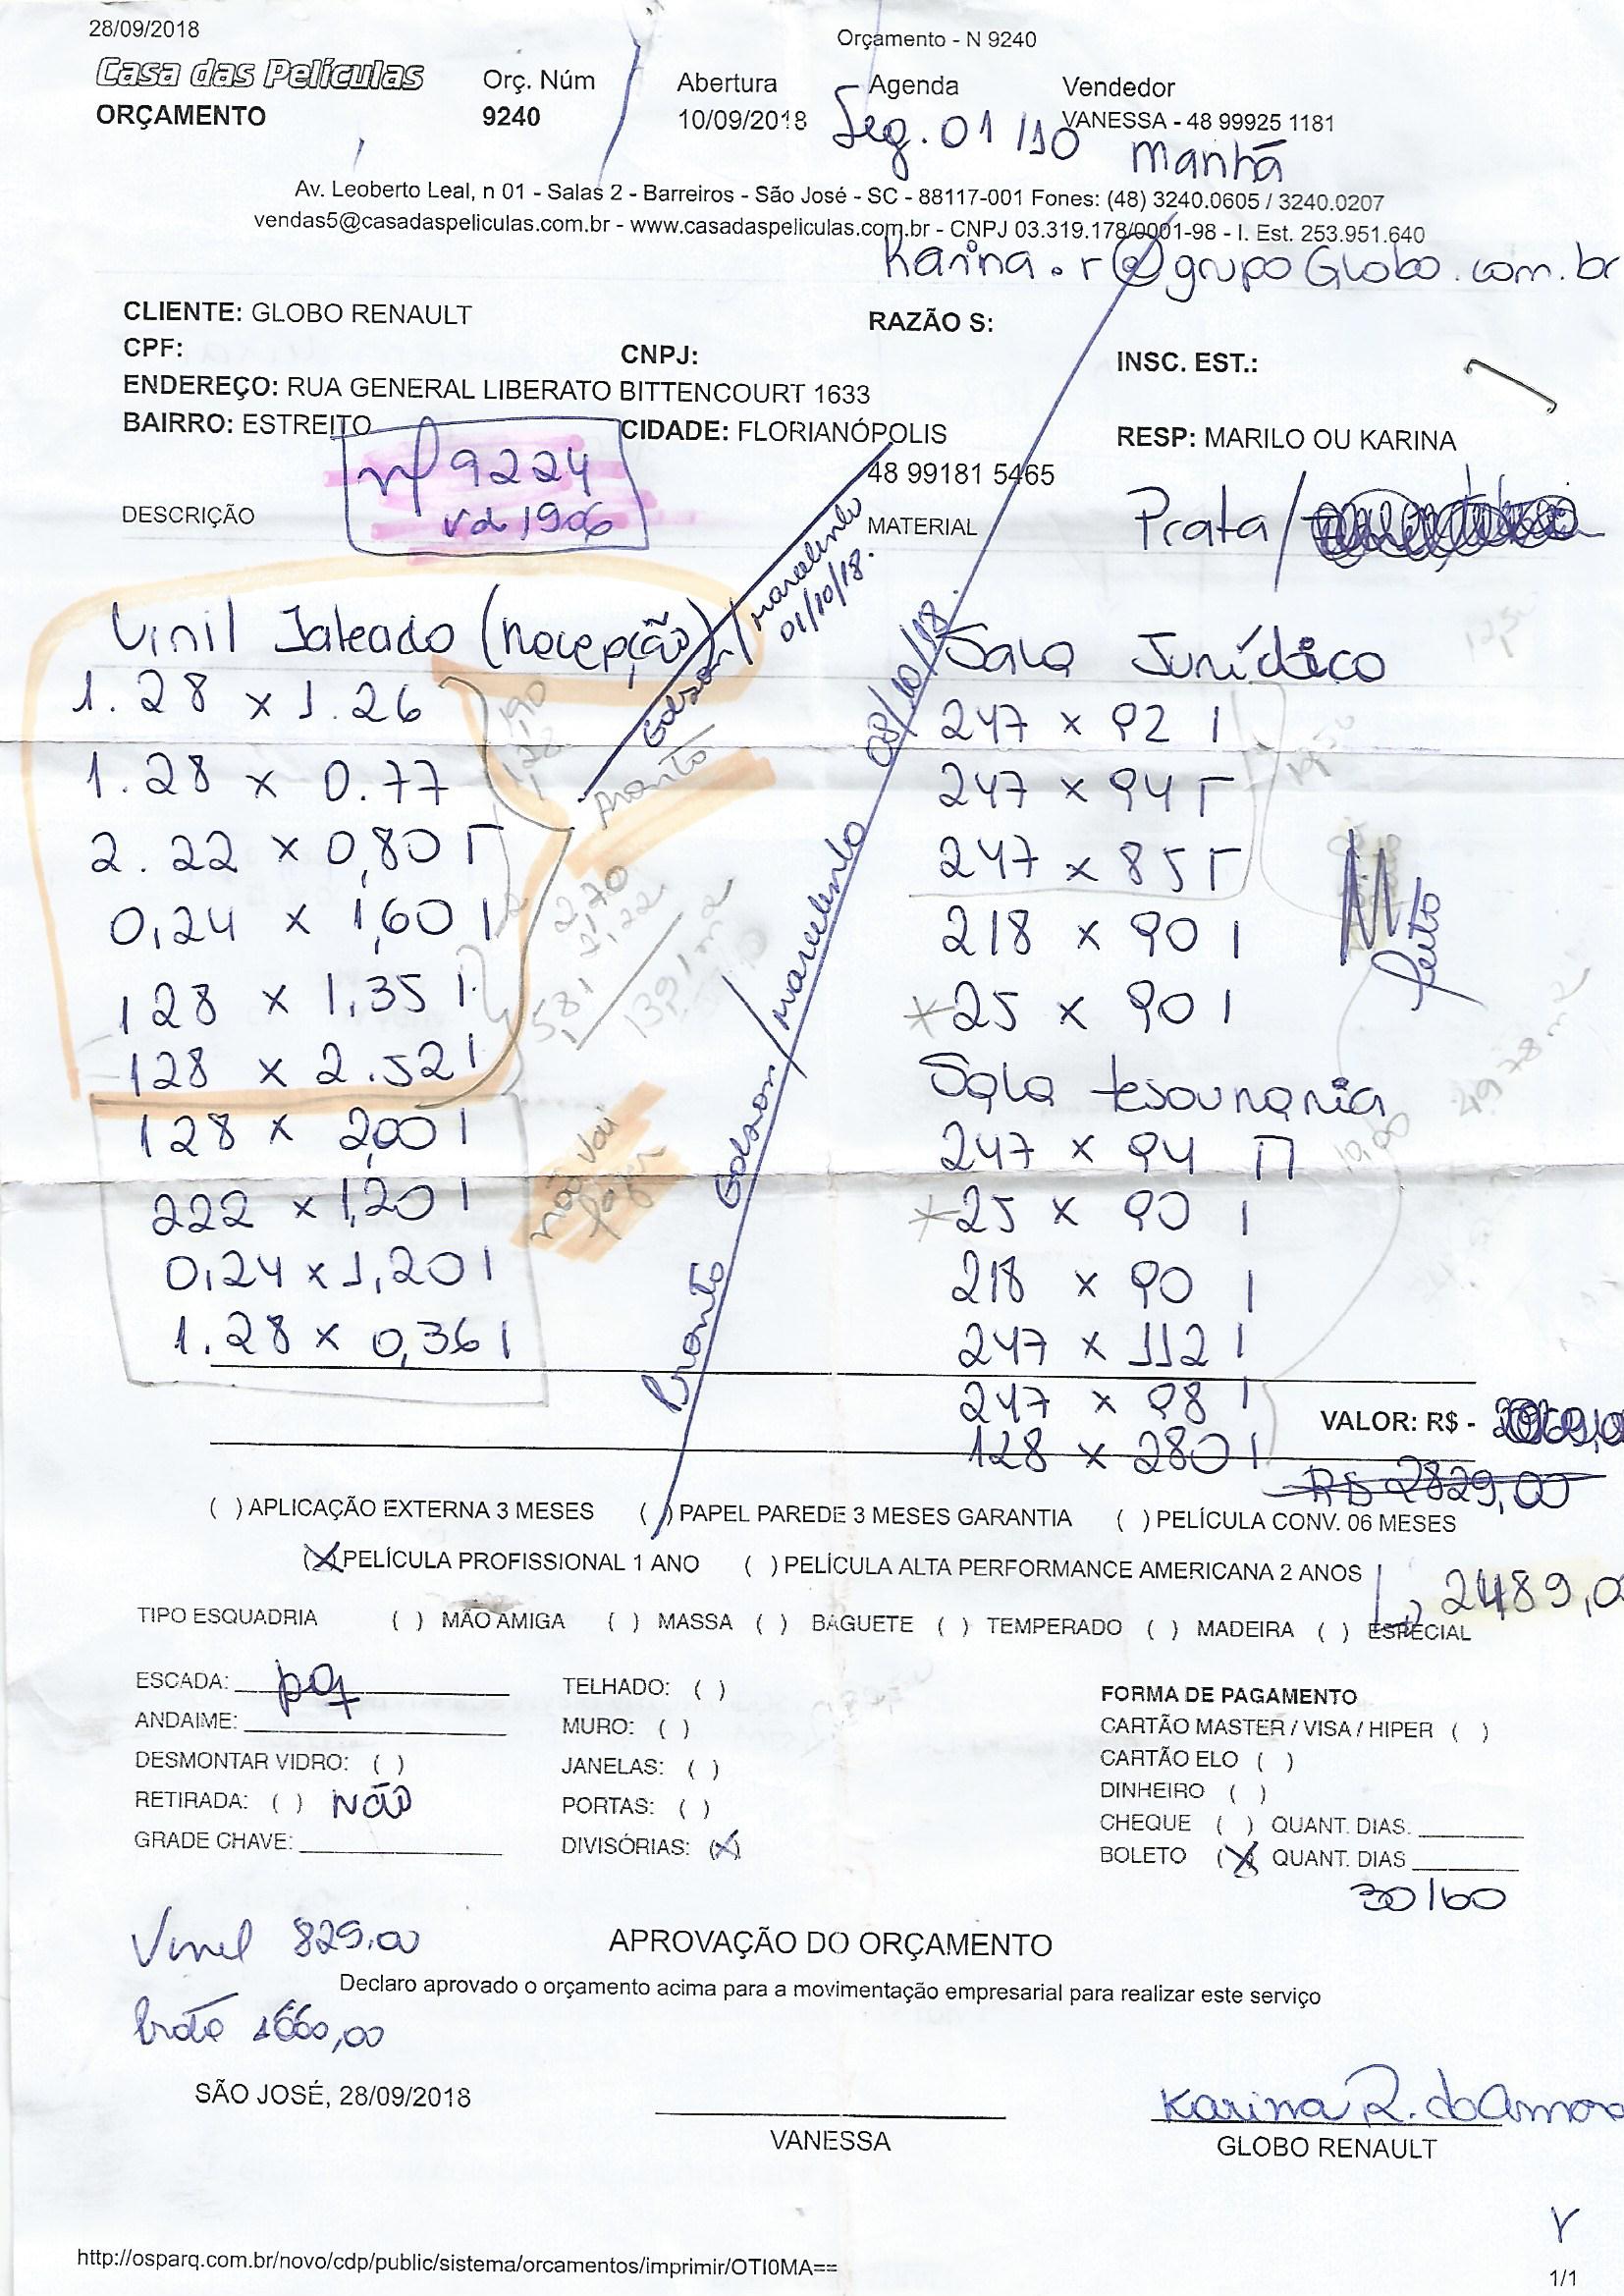 28/09/2018
Orçamento - N 9240
Casa das Películas
ORÇAMENTO
Orç. Núm
9240
Abertura
10/09/2018
Agenda
Seg. 01/10 Manhã
Vendedor
VANESSA - 48 99925 1181
Av. Leoberto Leal, n 01 - Salas 2 - Barreiros - São José - SC - 88117-001 Fones: (48) 3240.0605 / 3240.0207
vendas5@casadaspeliculas.com.br - www.casadaspeliculas.com.br - CNPJ 03.319.178/0001-98 - I. Est. 253.951.640
Karina.r@grupoGlobo.com.br
CLIENTE: GLOBO RENAULT
RAZÃO S:
CPF:
CNPJ:
INSC. EST.:
ENDEREÇO: RUA GENERAL LIBERATO BITTENCOURT 1633
BAIRRO: ESTREITO
CIDADE: FLORIANÓPOLIS
RESP: MARILO OU KARINA
48 99181 5465
nf 9224
vd 1906
DESCRIÇÃO
MATERIAL
Prata /
Vinil Jateado (Recepção)
1.28 x 1.26
1.28 x 0.77
2.22 x 0,80 Γ
0,24 x 1,60 I
128 x 1,35 I
128 x 2.52 I
128 x 2,00 I
222 x 1,20 I
0,24 x 1,20 I
1.28 x 0,36 I
1,90
1,28
2,70
7,22
581
1391 m2
Pronto
não vai
fazer
Edson / marcelinho
01/10/18.
Pronto Edson / marcelinho 08/10/18.
Sala Jurídico
247 x 92 I
247 x 94 Γ
247 x 85 Γ
218 x 90 I
*25 x 90 I
Sala tesouraria
247 x 94 Π
*25 x 90 I
218 x 90 I
247 x 112 I
247 x 98 I
128 x 280 I
12,50
19,50
feito
10,00
29,78 m2
VALOR: R$ -
R$ 2829,00
2489,0
( ) APLICAÇÃO EXTERNA 3 MESES ( ) PAPEL PAREDE 3 MESES GARANTIA ( ) PELÍCULA CONV. 06 MESES
(X) PELÍCULA PROFISSIONAL 1 ANO ( ) PELÍCULA ALTA PERFORMANCE AMERICANA 2 ANOS
TIPO ESQUADRIA ( ) MÃO AMIGA ( ) MASSA ( ) BAGUETE ( ) TEMPERADO ( ) MADEIRA ( ) ESPECIAL
ESCADA: pq
ANDAIME:
DESMONTAR VIDRO: ( )
RETIRADA: ( ) NÃO
GRADE CHAVE:
TELHADO: ( )
MURO: ( )
JANELAS: ( )
PORTAS: ( )
DIVISÓRIAS: (X)
FORMA DE PAGAMENTO
CARTÃO MASTER / VISA / HIPER ( )
CARTÃO ELO ( )
DINHEIRO ( )
CHEQUE ( ) QUANT. DIAS.
BOLETO (X) QUANT. DIAS
30/60
Vinil 829,00
APROVAÇÃO DO ORÇAMENTO
Declaro aprovado o orçamento acima para a movimentação empresarial para realizar este serviço
1660,00
SÃO JOSÉ, 28/09/2018
VANESSA
Karina R. do Amor
GLOBO RENAULT
http://osparq.com.br/novo/cdp/public/sistema/orcamentos/imprimir/OTI0MA==
1/1